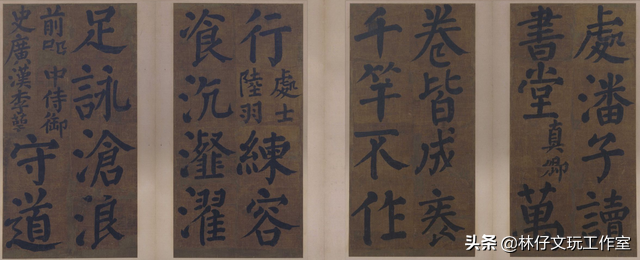 處潘子讀
書堂
真卿
萬
卷皆成袠
千竿不作
行
處士
陸羽
練容
飡沆瀣濯
足詠滄浪
前殿中侍御
史廣漢李萼
守道
头条 @林仔文玩工作室